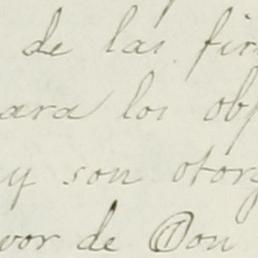 de las fir
ara los obj
y son otorg
vor de Don